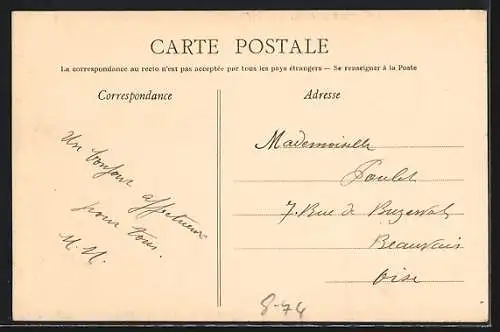 CARTE POSTALE
La correspondance au recto n'est pas acceptée par tous les pays étrangers — Se renseigner à la Poste
Correspondance
Un bonjour
affectueux
pour tous.
M. M.
Adresse
Mademoiselle
Poulet
7. Rue de Buzenval
Beauvais
Oise
8-74